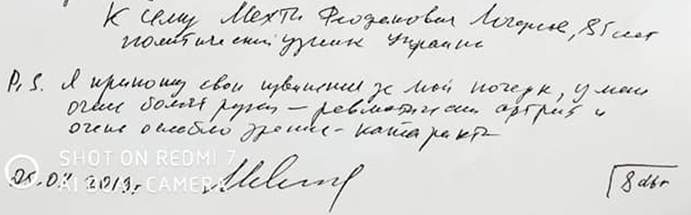 К сему Мехти Феофанович Логунов, 85 лет
политический узник Украины
P.S. Я приношу свои извинения за мой почерк, у меня
очень болят руки – ревматический артрит и
очень ослабло зрение - катаракта
SHOT ON REDMI 7
AI DUAL CAMERA
2019г